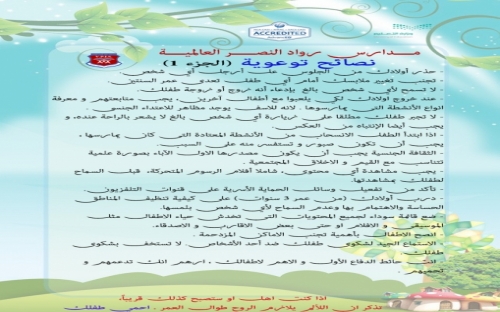 ACCREDITED
مدارس رواد النصر العالمية
نصائح توعوية (الجزء 1)
حذر أولادك من الجلوس على أرجل أي شخص.
- تجنب تغيير ملابسك أمام أي طفلك تعدى عمر السنتين.
- لا تسمح لأي شخص بالغ بإدعاء أنه زوج أو زوجة طفلك.
عند خروج أولادك لكي يلعبوا مع أطفال آخرين، يجب متابعتهم و معرفة
أنواع الأنشطة التي يمارسوها لأنه للأسف يوجد مظاهر للاعتداء الجنسي.
- لا تجبر طفلك مطلقا على زيارة أي شخص بالغ لا يشعر بالراحة عنده، و
يجب أيضا الإنتباه من العكس.
- اذا ابتدأ الطفل الانسحاب من الأنشطة المعتادة التي كان يمارسها،
يجب أن تكون صبور و تستفسر منه على السبب.
- الثقافة الجنسية يجب أن يكون مصدرها الاول الآباء بصورة علمية
تتناسب مع القيم و الاخلاق المجتمعية.
- يجب مشاهدة أي محتوى، شاملا أفلام الرسوم المتحركة، قبل السماح
لطفلك بمشاهدتها.
- تأكد من تفعيل وسائل الحماية الأسرية على قنوات التلفزيون.
- درب أولادك (من عمر 3 سنوات) على كيفية تنظيف المناطق
الحساسة والاهتمام بها وعدم السماح لأي شخص بلمسها.
- ضع قائمة سوداء لجميع المحتويات التي تخدش حياء الاطفال مثل
الموسيقى و الافلام او حتى بعض الاقارب و الاصدقاء.
- انصح الاطفال بأهمية تجنب الاماكن المزدحمة.
- الاستماع الجيد لشكوى طفلك ضد أحد الأشخاص لا تستخف بشكوى
طفلك.
انت حائط الدفاع الأول و الاهم لاطفالك، ارهم انك تدعمهم و
تحميهم.
اذا كنت أهل او ستصبح كذلك قريباً،
تذكر ان الألم يلازم الروح طوال العمر، احمي طفلك